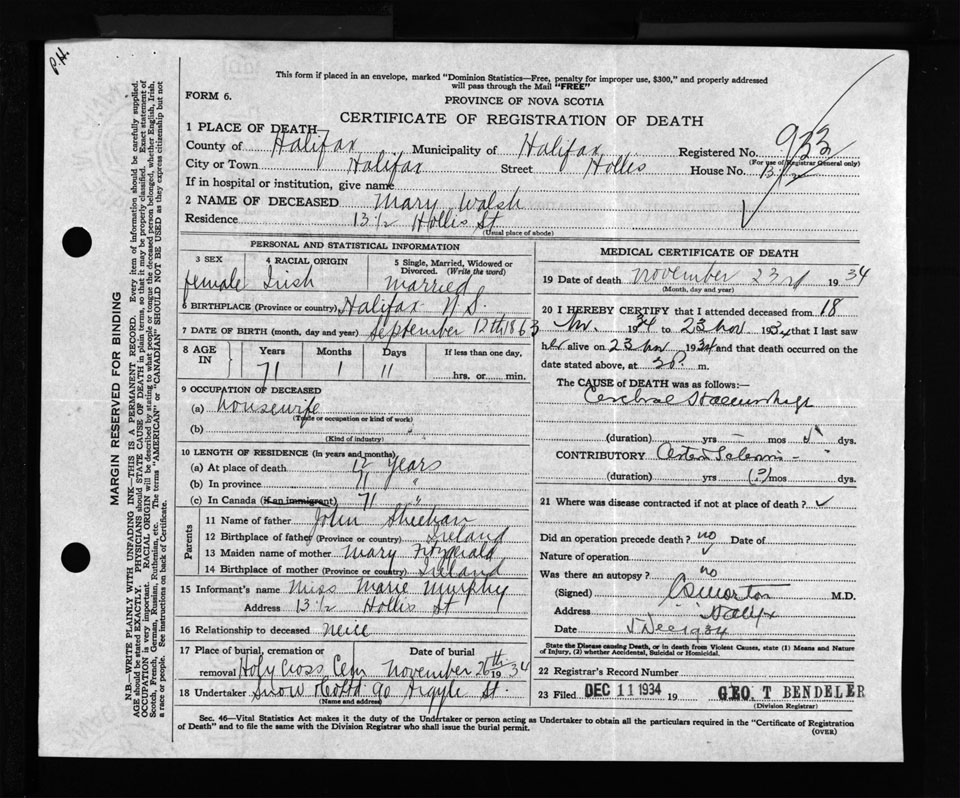 P.H.
This form if placed in an envelope, marked "Dominion Statistics—Free, penalty for improper use, $300," and properly addressed
will pass through the Mail "FREE"
FORM 6.
PROVINCE OF NOVA SCOTIA
CERTIFICATE OF REGISTRATION OF DEATH
1 PLACE OF DEATH
County of Halifax Municipality of Halifax Registered No. 933
(For use of Registrar General only)
City or Town Halifax Street Hollis House No. 13 1/2
If in hospital or institution, give name
2 NAME OF DECEASED Mary Walsh
Residence 13 1/2 Hollis St
(Usual place of abode)
PERSONAL AND STATISTICAL INFORMATION
3 SEX 4 RACIAL ORIGIN 5 Single, Married, Widowed or Divorced. (Write the word)
female Irish Married
6 BIRTHPLACE (Province or country) Halifax N.S.
7 DATE OF BIRTH (month, day and year) September 12th 1863
8 AGE IN Years Months Days If less than one day,
71 1 11 hrs. or min.
9 OCCUPATION OF DECEASED
(a) housewife
(Trade or occupation or kind of work)
(b)
(Kind of industry)
10 LENGTH OF RESIDENCE (in years and months)
(a) At place of death 12 years
(b) In province 71 "
(c) In Canada (if an immigrant) 71 "
Parents
11 Name of father John Sheehan
12 Birthplace of father (Province or country) Ireland
13 Maiden name of mother Mary Fitzgerald
14 Birthplace of mother (Province or country) Ireland
15 Informant's name Miss Marie Murphy
Address 13 1/2 Hollis St
16 Relationship to deceased neice
17 Place of burial, cremation or removal Date of burial
Holy Cross Cem November 26th 1934
18 Undertaker Snow & Co Ltd 90 Argyle St.
(Name and address)
MEDICAL CERTIFICATE OF DEATH
19 Date of death November 23rd 1934
(Month, day and year)
20 I HEREBY CERTIFY that I attended deceased from 18
Nov. 1934 to 23 Nov 1934 that I last saw
her alive on 23 Nov 1934 and that death occurred on the
date stated above, at m.
The CAUSE of DEATH was as follows:—
Cerebral Haemorrhage
(duration) yrs — mos 5 dys.
CONTRIBUTORY Arterio Sclerosis -
(duration) yrs (?) mos dys.
21 Where was disease contracted if not at place of death?
Did an operation precede death? no Date of
Nature of operation
Was there an autopsy? no
(Signed) Morton M.D.
Address Halifax
Date 5 Dec 1934
State the Disease causing Death, or in death from Violent Causes, state (1) Means and Nature of Injury, (2) whether Accidental, Suicidal or Homicidal.
22 Registrar's Record Number
23 Filed DEC 11 1934 19 GEO. T BENDELER
(Division Registrar)
Sec. 46—Vital Statistics Act makes it the duty of the Undertaker or person acting as Undertaker to obtain all the particulars required in the "Certificate of Registration
of Death" and to file the same with the Division Registrar who shall issue the burial permit.
(OVER)
MARGIN RESERVED FOR BINDING
N.B.—WRITE PLAINLY WITH UNFADING INK—THIS IS A PERMANENT RECORD. Every item of information should be carefully supplied.
AGE should be stated EXACTLY. PHYSICIANS should STATE CAUSE OF DEATH in plain terms, so that it may be properly classified. Exact statement of
OCCUPATION is very important. RACIAL ORIGIN will be described by stating to what people or tongue the deceased person belonged, whether English, Irish,
Scotch, French, German, Russian, Ruthenian, etc. The terms "AMERICAN" or "CANADIAN" SHOULD NOT BE USED as they express citizenship but not
a race or people. See instructions on back of Certificate.